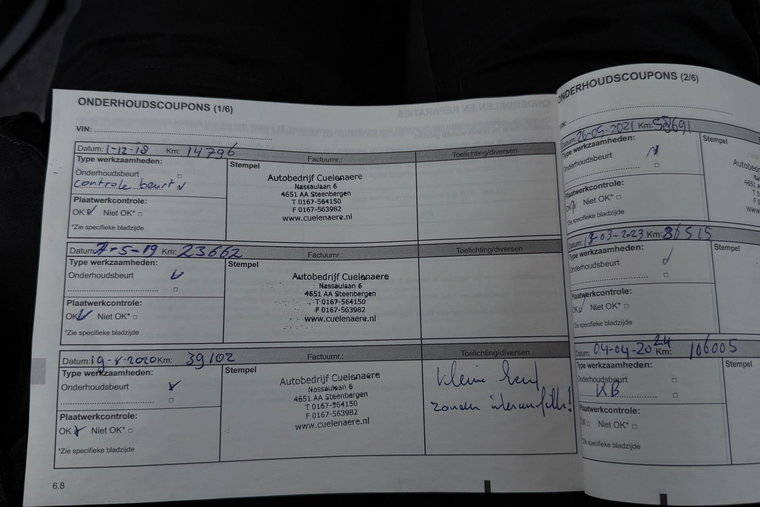 ONDERHOUDSCOUPONS (1/6)
VIN:
Datum: 1-12-18 Km: 14796 Factuurnr.: Toelichting/diversen
Type werkzaamheden:
Onderhoudsbeurt
controle beurt
Plaatwerkcontrole:
OK Niet OK*
*Zie specifieke bladzijde
Stempel
Autobedrijf Cuelenaere
Nassaulaan 6
4651 AA Steenbergen
T 0167-564150
F 0167-563982
www.cuelenaere.nl
Datum: 7-5-19 Km: 23662 Factuurnr.: Toelichting/diversen
Type werkzaamheden:
Onderhoudsbeurt
Plaatwerkcontrole:
OK Niet OK*
*Zie specifieke bladzijde
Stempel
Autobedrijf Cuelenaere
Nassaulaan 6
4651 AA Steenbergen
T 0167-564150
F 0167-563982
www.cuelenaere.nl
Datum: 19-8-2020 Km: 39102 Factuurnr.: Toelichting/diversen
Type werkzaamheden:
Onderhoudsbeurt
Plaatwerkcontrole:
OK Niet OK*
*Zie specifieke bladzijde
Stempel
Autobedrijf Cuelenaere
Nassaulaan 6
4651 AA Steenbergen
T 0167-564150
F 0167-563982
www.cuelenaere.nl
kleine beurt
zonder
6.8
ONDERHOUDSCOUPONS (2/6)
VIN:
Datum: 26-05-2021 Km:
Type werkzaamheden:
Onderhoudsbeurt
Plaatwerkcontrole:
OK Niet OK*
*Zie specifieke bladzijde
Stempel
Autobed
Nas
4651 AA
T 01
F 01
www.c
Datum: -03-2023 Km:
Type werkzaamheden:
Onderhoudsbeurt
Plaatwerkcontrole:
OK Niet OK*
*Zie specifieke bladzijde
Stempel
Datum: 04-04-2024 Km: 106005
Type werkzaamheden:
Onderhoudsbeurt
KB
Plaatwerkcontrole:
OK Niet OK*
*Zie specifieke bladzijde
Stempel